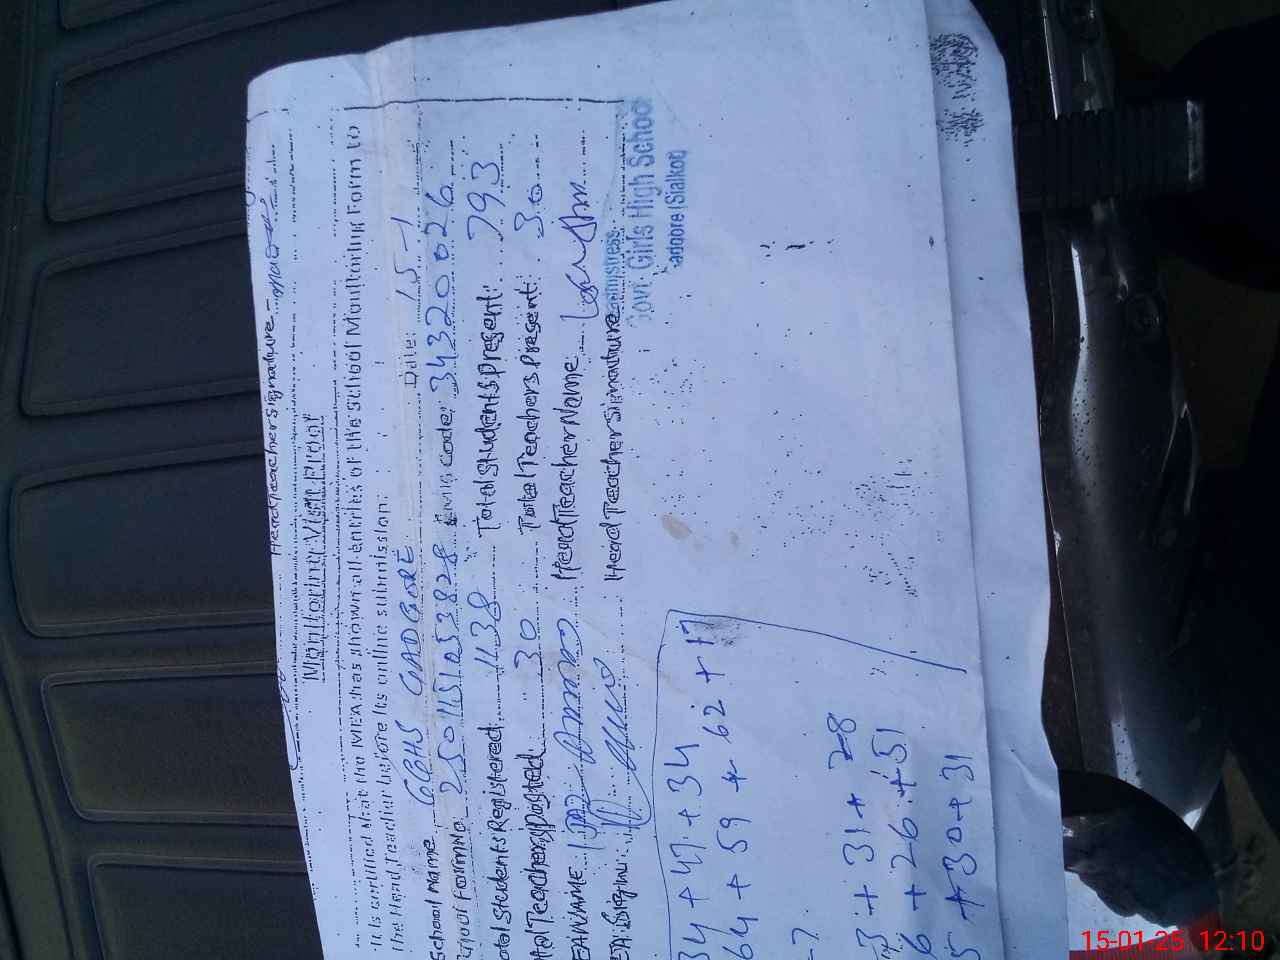 Head Teacher Signature
Monitoring Visit Proof
It is certified that the MEA has shown all entries of the School Monitoring Form to
the Head Teacher before its online submission.
School Name GGHS GADGORE Date: 15-1
School Form No. 2501151053828 Emis Code: 34320026
Total Students Registered 1138 Total Students Present: 793
Total Teachers Posted 30 Total Teachers Present: 30
MEA NAME Head Teacher Name
MEA Sign Head Teacher Signature
Headmistress
Govt. Girls High School
adgore (Sialkot)
34 + 47 + 34
64 + 59 + 62 + 17
3 + 31 + 28
6 + 26 + 51
5 + 30 + 31
15-01-25 12:10